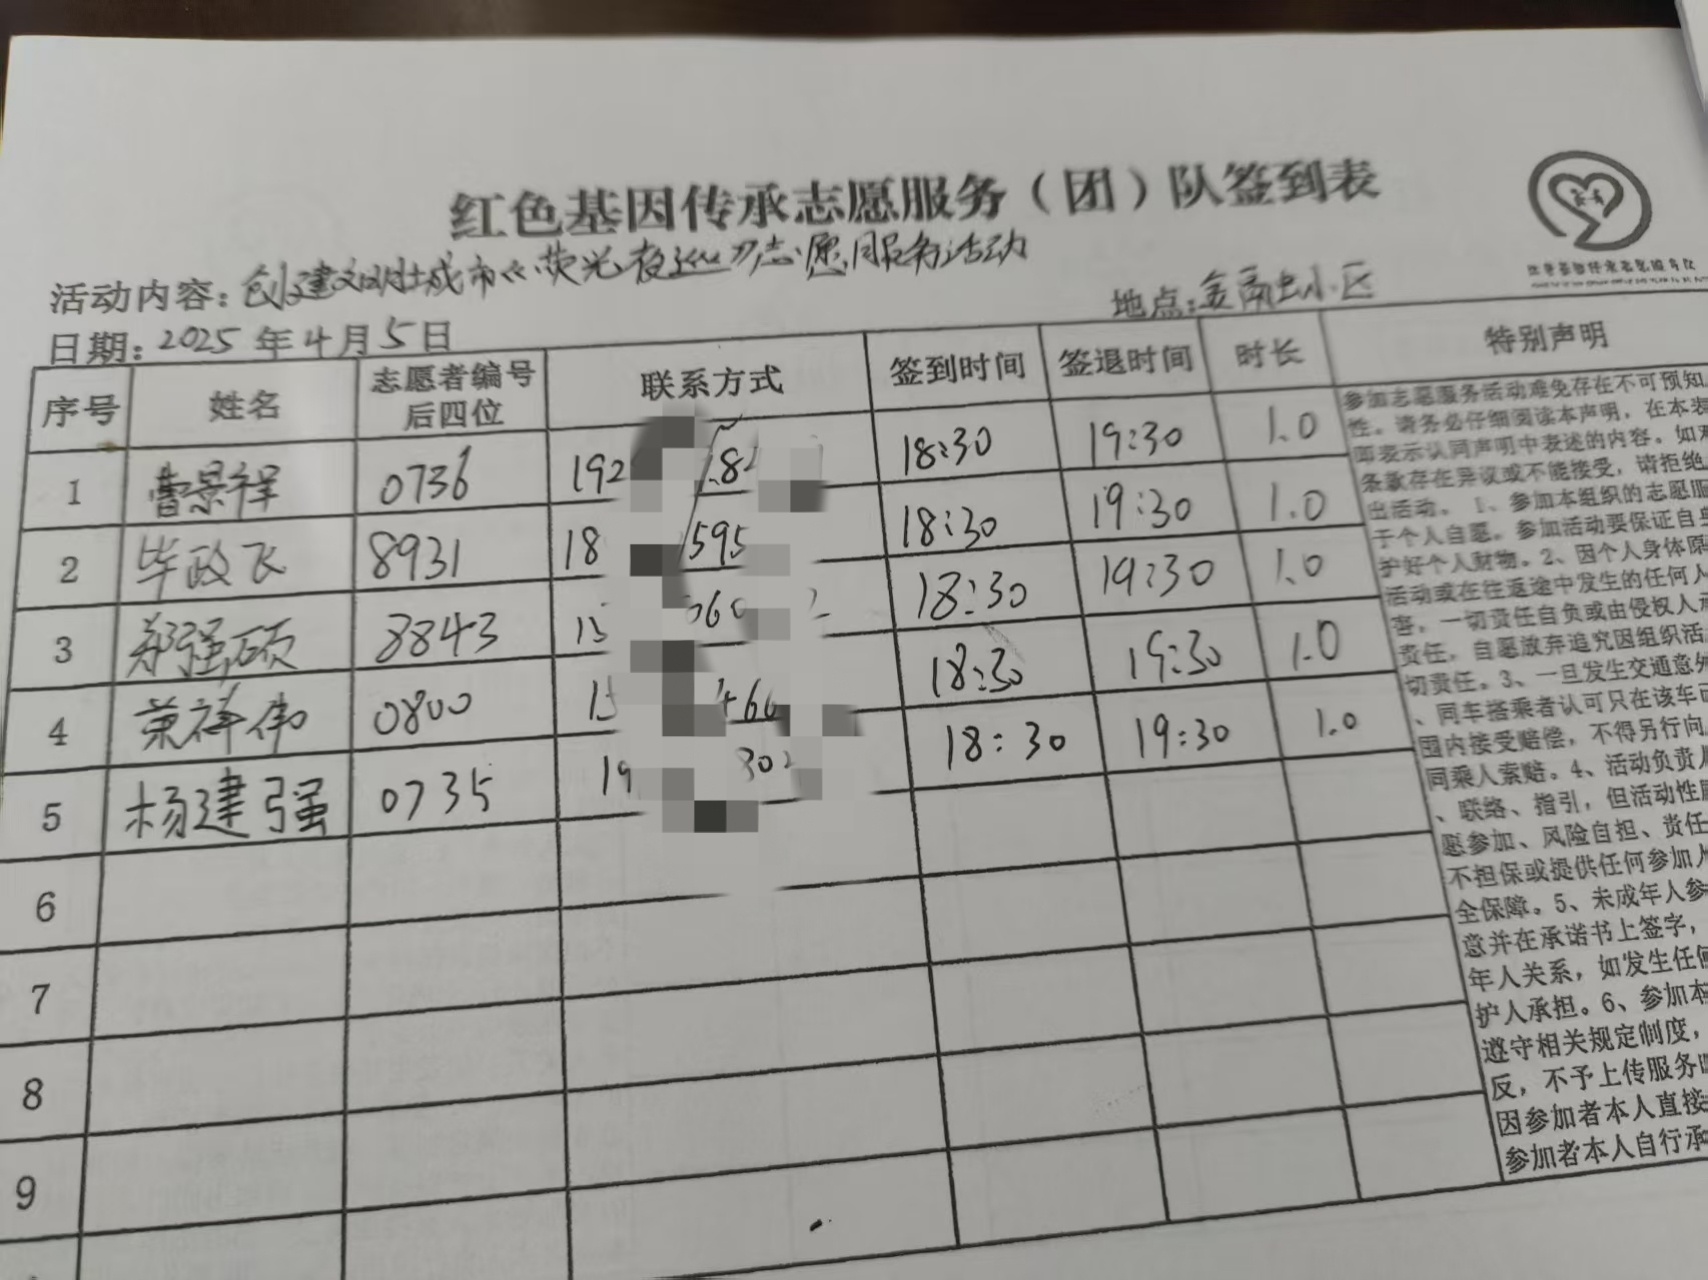 红色基因传承志愿服务（团）队签到表
活动内容：创建文明城市《荧光夜巡》志愿服务活动
地点：小区
日期：2025年4月5日
序号 姓名 志愿者编号后四位 联系方式 签到时间 签退时间 时长 特别声明
1 曹景祥 0736 192 82 18:30 19:30 1.0
2 毕政飞 8931 18 595 18:30 19:30 1.0
3 郑强硕 8843 15 060 18:30 19:30 1.0
4 荣祥伟 0800 15 466 18:30 19:30 1.0
5 杨建强 0735 19 302 18:30 19:30 1.0
6
7
8
9
参加志愿服务活动难免存在不可预知
性。请务必仔细阅读本声明，在本表
即表示认同声明中表述的内容。如对
条款存在异议或不能接受，请拒绝
出活动。1、参加本组织的志愿服
于个人自愿。参加活动要保证自身
护好个人财物。2、因个人身体原
活动或在往返途中发生的任何人
害，一切责任自负或由侵权人承
责任，自愿放弃追究因组织活
切责任。3、一旦发生交通意外
、同车搭乘者认可只在该车已
围内接受赔偿，不得另行向
同乘人索赔。4、活动负责
、联络、指引，但活动性
愿参加、风险自担、责任
不担保或提供任何参加人
全保障。5、未成年人参
意并在承诺书上签字，
年人关系，如发生任何
护人承担。6、参加本
遵守相关规定制度，
反，不予上传服务时
因参加者本人直接
参加者本人自行承